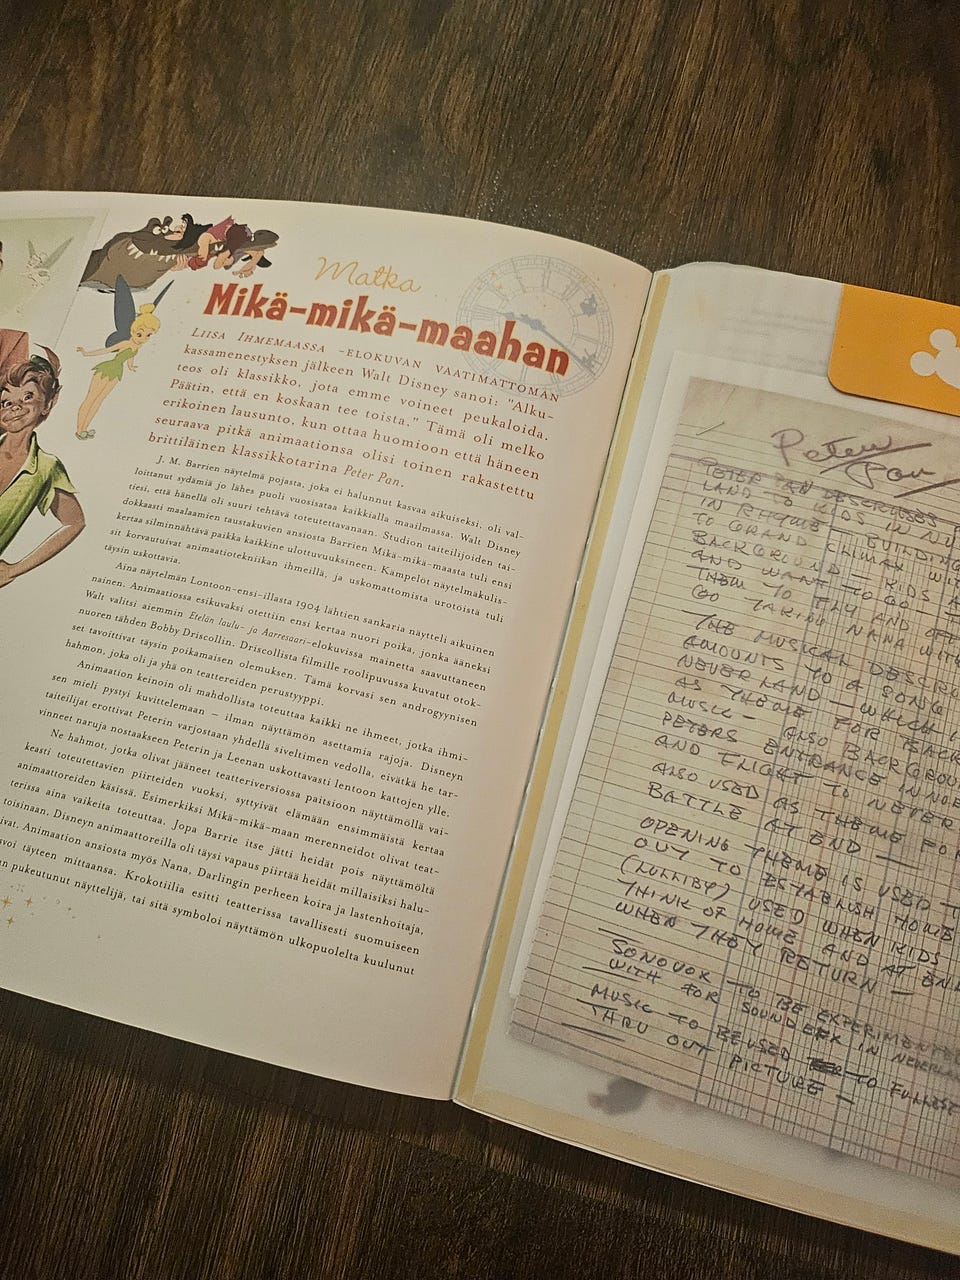 Matka
Mikä-mikä-maahan
LIISA IHMEMAASSA -ELOKUVAN VAATIMATTOMAN
kassamenestyksen jälkeen Walt Disney sanoi: "Alku-
teos oli klassikko, jota emme voineet peukaloida.
Päätin, että en koskaan tee toista." Tämä oli melko
erikoinen lausunto, kun ottaa huomioon että häneen
seuraava pitkä animaationsa olisi toinen rakastettu
brittiläinen klassikkotarina Peter Pan.
J. M. Barrien näytelmä pojasta, joka ei halunnut kasvaa aikuiseksi, oli val-
loittanut sydämiä jo lähes puoli vuosisataa kaikkialla maailmassa. Walt Disney
tiesi, että hänellä oli suuri tehtävä toteutettavanaan. Studion taiteilijoiden tai-
dokkaasti maalaamien taustakuvien ansiosta Barrien Mikä-mikä-maasta tuli ensi
kertaa silminnähtävä paikka kaikkine ulottuvuuksineen. Kömpelöt näytelmäkulis-
sit korvautuivat animaatiotekniikan ihmeillä, ja uskomattomista urotöistä tuli
täysin uskottavia.
Aina näytelmän Lontoon-ensi-illasta 1904 lähtien sankaria näytteli aikuinen
nainen. Animaatiossa esikuvaksi otettiin ensi kertaa nuori poika, jonka ääneksi
Walt valitsi aiemmin Etelän laulu- ja Aarresaari-elokuvissa mainetta saavuttaneen
nuoren tähden Bobby Driscollin. Driscollista filmille roolipuvussa kuvatut otok-
set tavoittivat täysin poikamaisen olemuksen. Tämä korvasi sen androgyynisen
hahmon, joka oli ja yhä on teattereiden perustyyppi.
Animaation keinoin oli mahdollista toteuttaa kaikki ne ihmeet, jotka ihmi-
sen mieli pystyi kuvittelemaan – ilman näyttämön asettamia rajoja. Disneyn
taiteilijat erottivat Peterin varjostaan yhdellä siveltimen vedolla, eivätkä he tar-
vinneet naruja nostaakseen Peterin ja Leenan uskottavasti lentoon kattojen ylle.
Ne hahmot, jotka olivat jääneet teatteriversiossa paitsioon näyttämöllä vai-
keasti toteutettavien piirteiden vuoksi, syttyivät elämään ensimmäistä kertaa
animaattoreiden käsissä. Esimerkiksi Mikä-mikä-maan merenneidot olivat teat-
terissa aina vaikeita toteuttaa. Jopa Barrie itse jätti heidät pois näyttämöltä
toisinaan. Disneyn animaattoreilla oli täysi vapaus piirtää heidät millaisiksi halu-
ivat. Animaation ansiosta myös Nana, Darlingin perheen koira ja lastenhoitaja,
voi täyteen mittaansa. Krokotiilia esitti teatterissa tavallisesti suomuiseen
n pukeutunut näyttelijä, tai sitä symboloi näyttämön ulkopuolelta kuulunut
Peter
Pan
PETER PAN DESCRIBES
LAND TO KIDS IN NU
IN RHYME – BUILDING
TO GRAND CLIMAX WIT
BACKGROUND – KIDS
AND WANT TO GO –
THEM TO FLY AND OFF
GO TAKING NANA WITH
THE MUSICAL DESCRI
AMOUNTS TO A SONG
NEVERLAND – WHICH I
AS THEME FOR BACK
MUSIC – ALSO BACKGROU
PETERS ENTRANCE IN
AND FLIGHT TO NEVER
ALSO USED AS THEME FOR
BATTLE AT END –
OPENING THEME IS USED T
OUT TO ESTABLISH HOME
(LULLIBY) USED WHEN KIDS
THINK OF HOME AND AT END
WHEN THEY RETURN –
SONOVOX TO BE EXPERIMENTED
WITH FOR SOUND EFX IN NEVERLAN
MUSIC TO BE USED TO FULLEST
THRU OUT PICTURE –